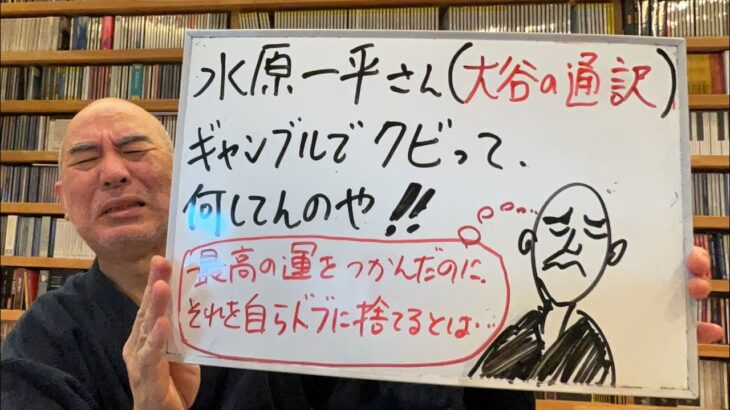 水原一平さん(大谷の通訳)
ギャンブルでクビって、
何してんのや!!
最高の運をつかんだのに、
それを自らドブに捨てるとは…